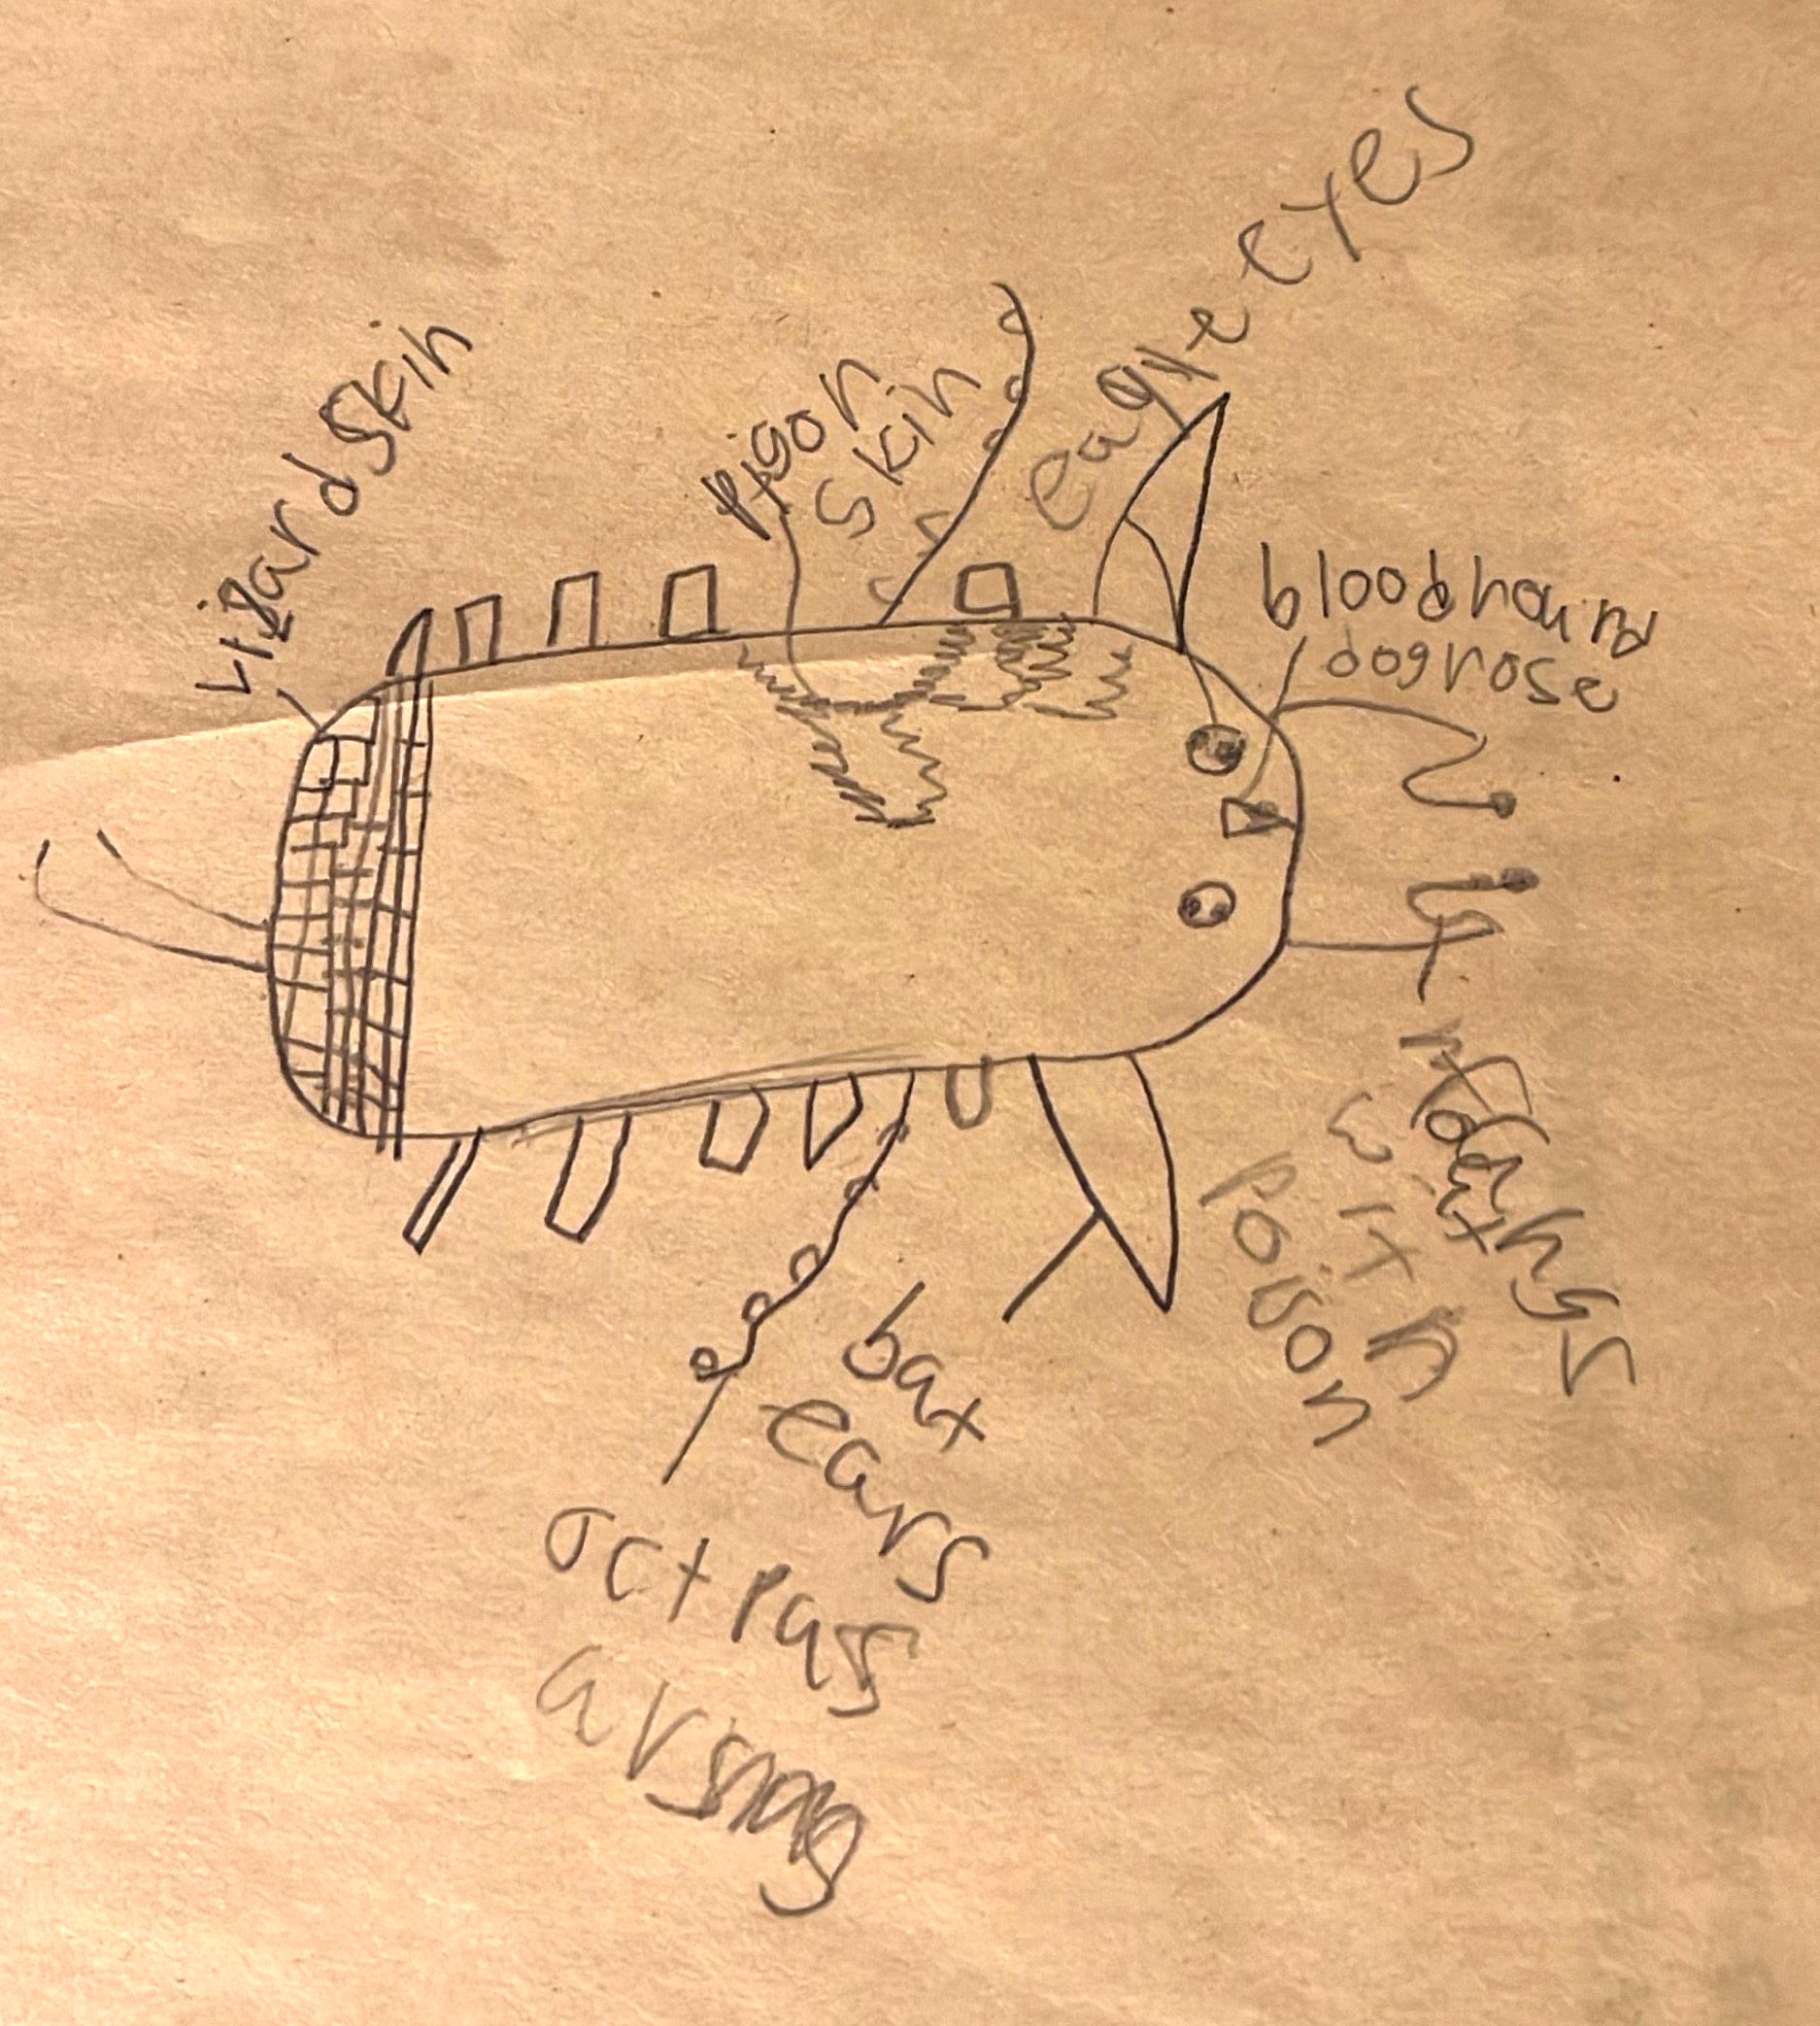 Lizard Skin
pigon
skin
eagle eyes
bloodhound
dog nose
with
poison
bat
ears
octpus